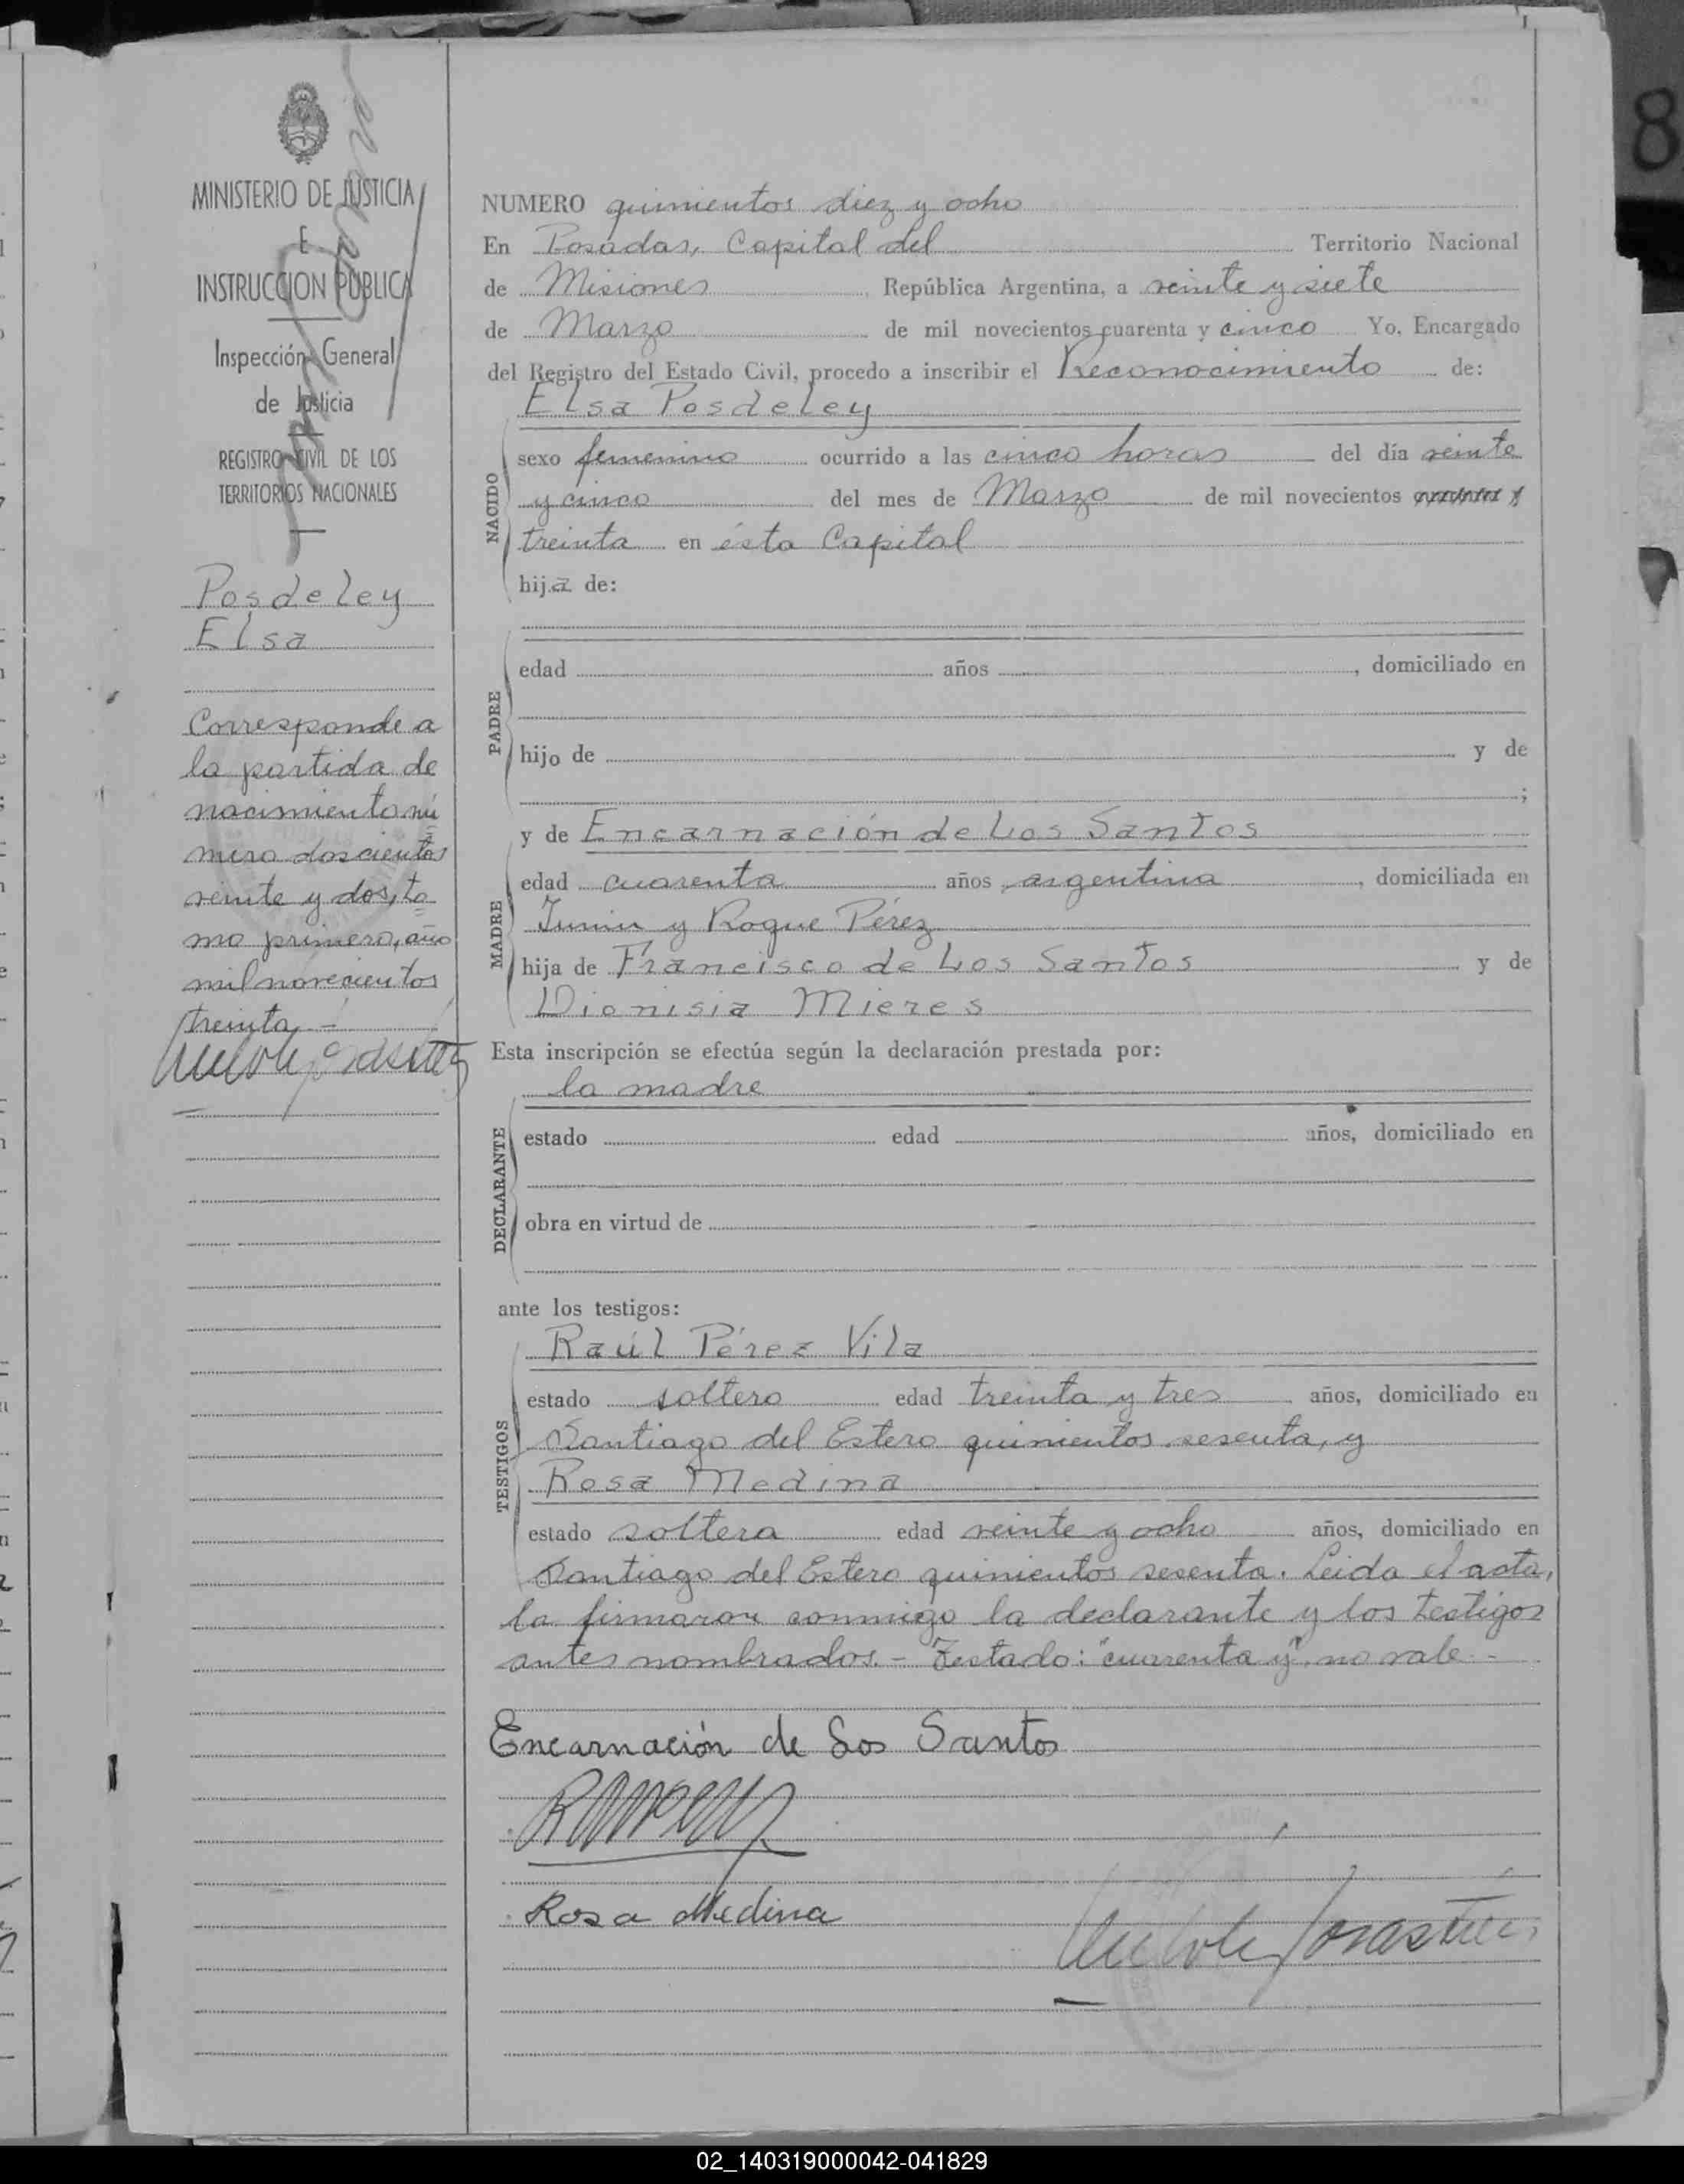 MINISTERIO DE JUSTICIA
E
INSTRUCCION PUBLICA
Inspección General
de Justicia
REGISTRO CIVIL DE LOS
TERRITORIOS NACIONALES
Posdeley
Elsa
Corresponde a
la partida de
nacimiento nú
mero doscientos
veinte y dos, to
mo primero, año
mil novecientos
treinta.-
NUMERO quinientos diez y ocho
En Posadas, Capital del Territorio Nacional
de Misiones República Argentina, a veinte y siete
de Marzo de mil novecientos cuarenta y cinco Yo, Encargado
del Registro del Estado Civil, procedo a inscribir el Reconocimiento de:
Elsa Posdeley
NACIDO
sexo femenino ocurrido a las cinco horas del día veinte
y cinco del mes de Marzo de mil novecientos cuarenta y
treinta en ésta Capital
hija de:
PADRE
edad años , domiciliado en
hijo de y de
;
MADRE
y de Encarnación de Los Santos
edad cuarenta años argentina , domiciliada en
Junin y Roque Pérez
hija de Francisco de Los Santos y de
Dionisia Mieres
Esta inscripción se efectúa según la declaración prestada por:
la madre
DECLARANTE
estado edad años, domiciliado en
obra en virtud de
ante los testigos:
TESTIGOS
Raúl Pérez Vila
estado soltero edad treinta y tres años, domiciliado en
Santiago del Estero quinientos sesenta, y
Rosa Medina
estado soltera edad veinte y ocho años, domiciliado en
Santiago del Estero quinientos sesenta. Leida el acta,
la firmaron conmigo la declarante y los testigos
antes nombrados.- Testado: "cuarenta y", no vale.-
Encarnación de Los Santos
Rosa Medina
8
02_140319000042-041829